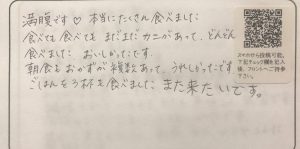 満腹です♡ 本当にたくさん食べました
食べても食べても まだまだ カニがあって、どんどん
食べました おいしかったです。
朝食もおかずが複数あって、うれしかったです
ごはんを3杯も食べました また来たいです。
スマホからも投稿可能。
下記チェック欄を記入
後、フロントへご持参
下さい。